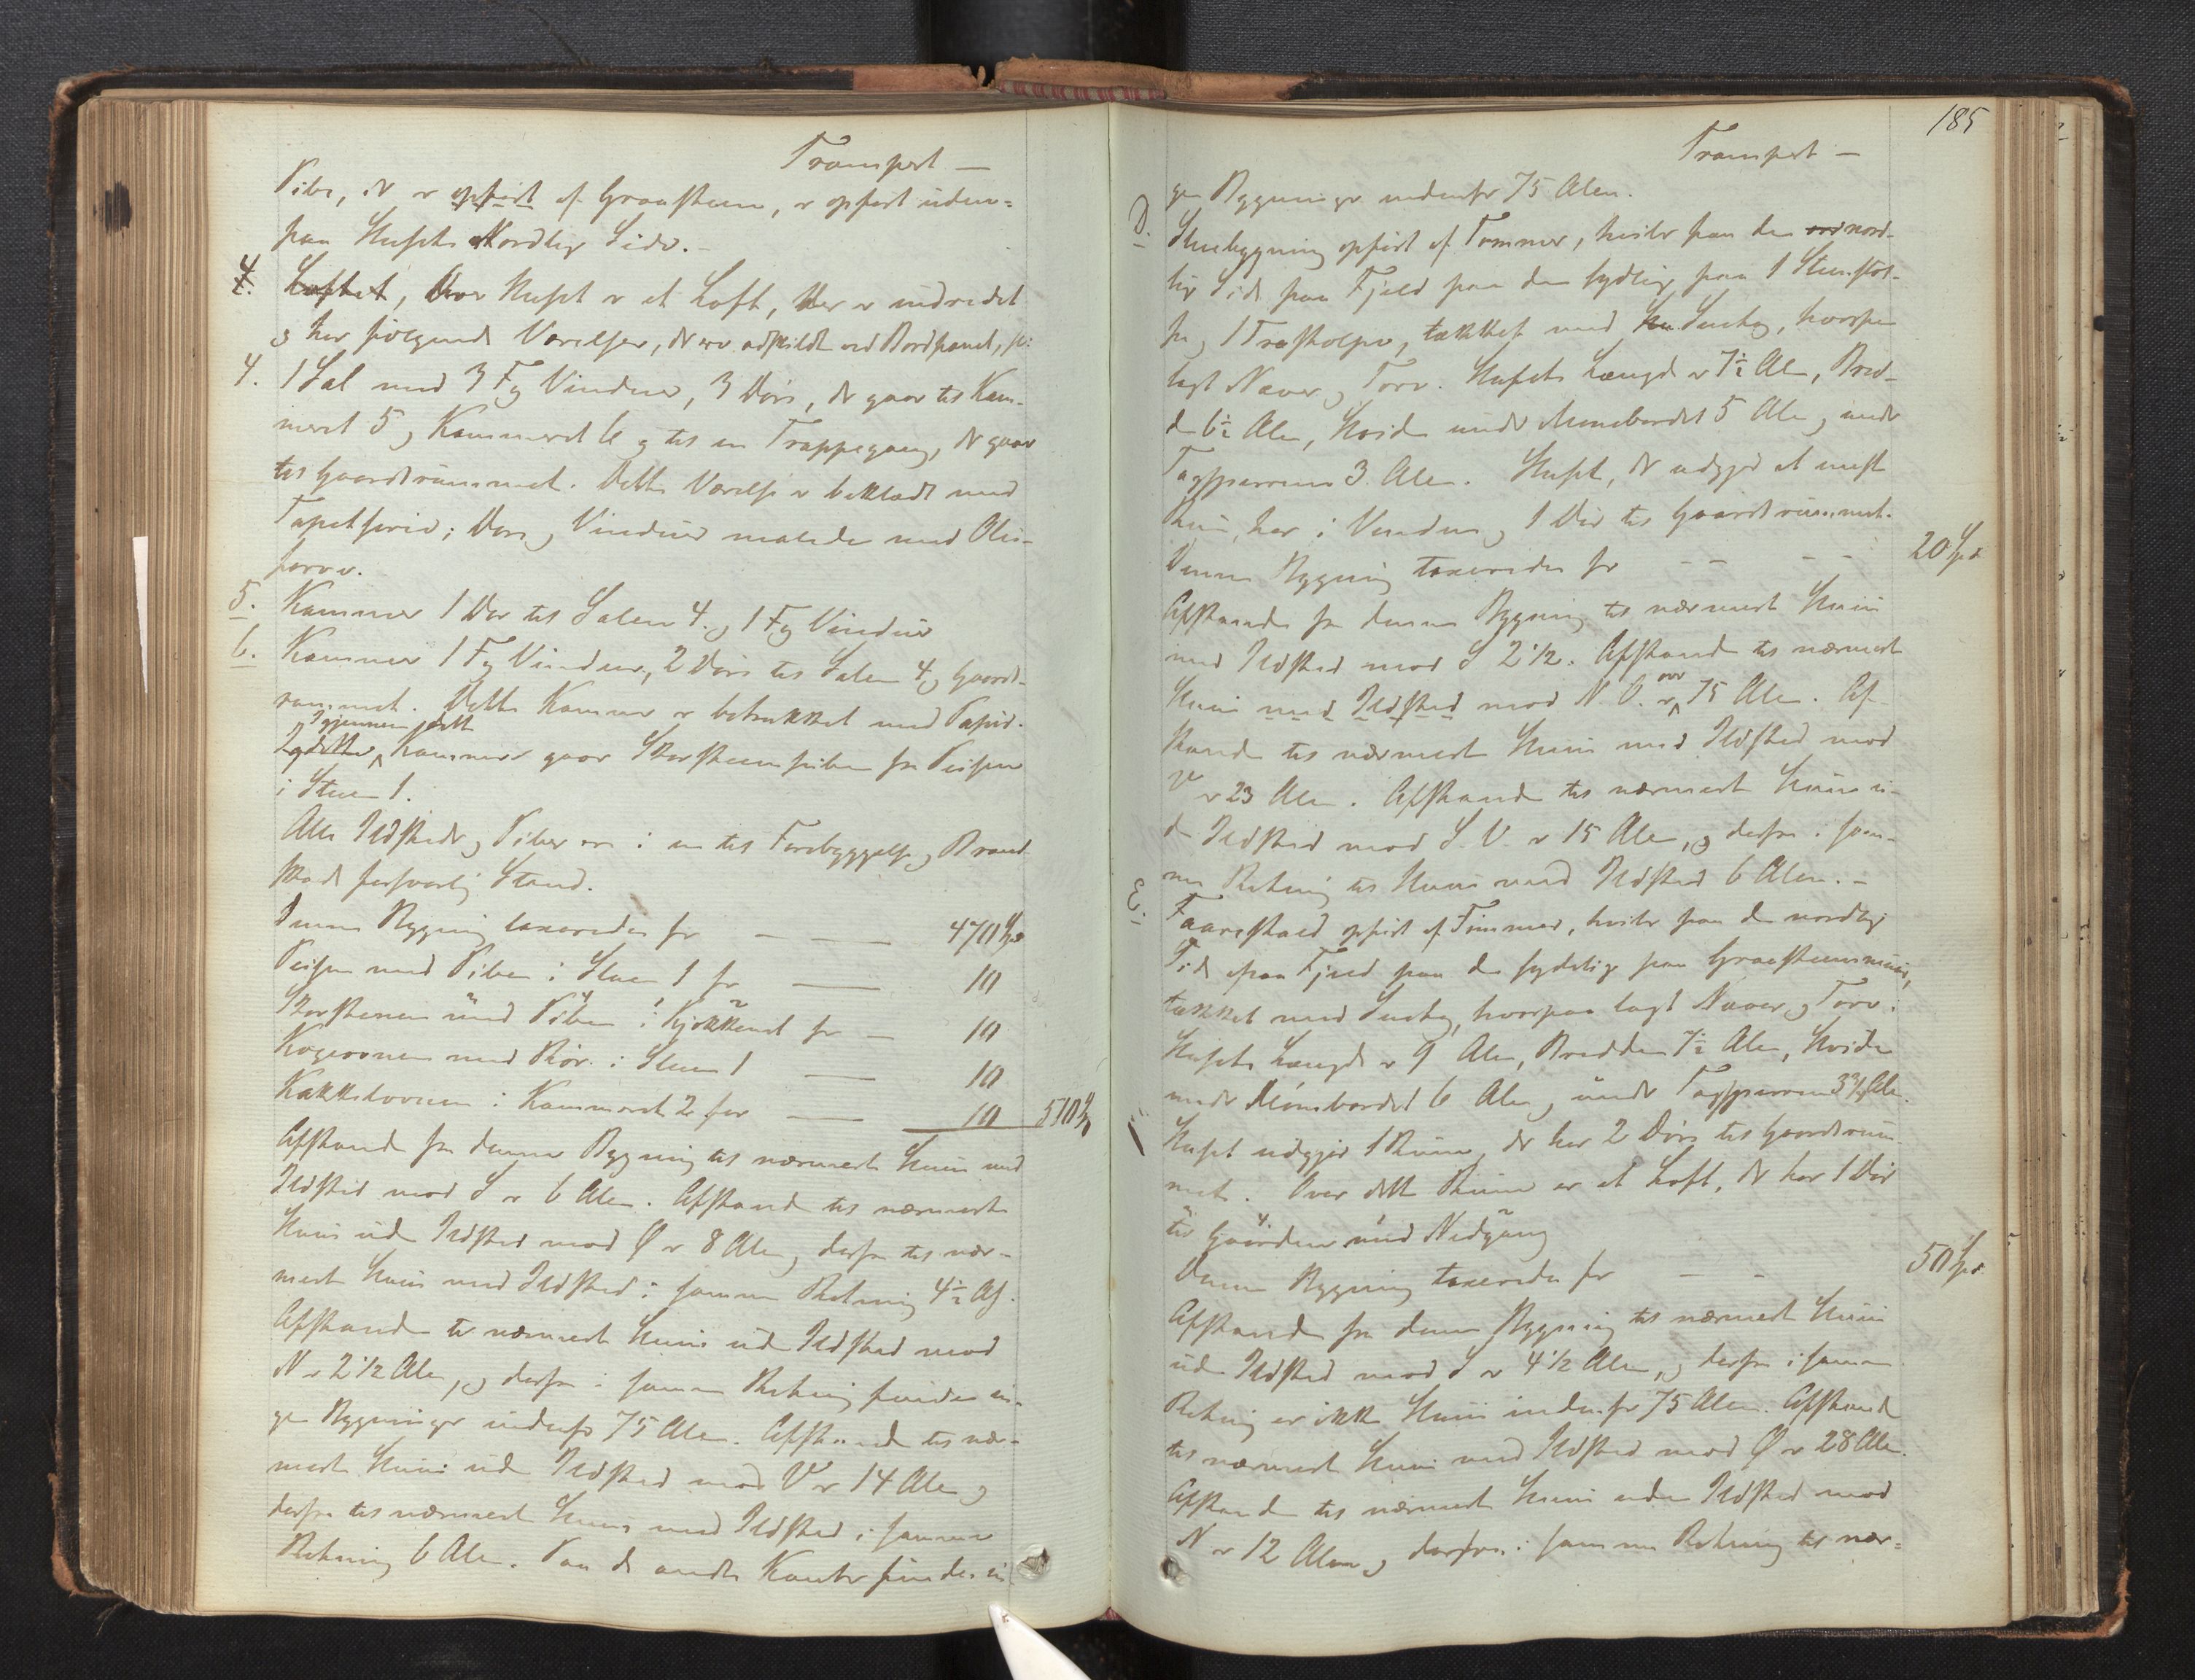 Transport —
Pibe, der er opført af Graasteen, er opført uden-
paa Husets Nordlige Side. –
4. Loftet, Over Huset er et Loft, der er indredet
og har følgende Værelser, der ere adskildt ved Bordpanel,
4. 1 Sal med 3 Fg Vinduer, 3 Døre, der gaar til Kam-
meret 5 og Kammeret 6 og til en Trappegang, der gaar
til Gaardsrummet. Dette Værelse er beklædt med
Tapetserie; Døre og Vinduer malede med Olie-
farve.
5. Kammer 1 Dør til Salen 4. og 1 Fg Vindue
6. Kammer 1 Fg Vindue, 2 Døre til Salen 4 og Gaards-
rummet. Dette Kammer er betrukket med Papir.
Igjennem dette
Kammer gaar Skorsteenspiben fra Peisen
i Stuen 1.
Alle Ildsteder og Piber ere i en til Forebyggelse af Brand-
skade forsvarlig Stand.
Denne Bygning taxeredes for — — 470 Spd
Peisen med Piben i Stuen 1 for — 10
Skorstenen med Piben i Kjøkkenet for — 10
Kogeovnen med Rør i Stuen 1 — 10
Kakkelovnen i Kammeret 2 for — 10 510 Spd
Afstanden fra denne Bygning til nærmeste Huus med
Ildsted mod S er 6 Alen. Afstand til nærmeste
Huus uden Ildsted mod Ø er 8 Alen og derfra til nær-
meste Huus med Ildsted i samme Retning 4½ Al.
Afstanden til nærmeste Huus uden Ildsted mod
N er 2 1/2 Alen, og derfra i samme Retning findes in-
gen Bygninger indenfor 75 Alen. Afstand til nær-
meste Huus uden Ildsted mod V er 14 Alen og
derfra til nærmeste Huus med Ildsted i samme
Retning 6 Alen. Paa de andre Kanter findes in-
185
Transport —
gen Bygninger indenfor 75 Alen.
D. Stuebygning opført af Tømmer, hviler paa den nord-
lige Side paa Fjeld paa den sydlige paa 1 Steenstol-
pe og 1 Træstolpe, tækket med Sutag, hvorpaa
lagt Næver og Torv. Husets Længde er 7½ Alen, Bred-
de 6½ Alen, Høiden under Mønebordet 5 Alen og under
Tagsperrene 3 Alen. Huset, der udgjør et eneste
Rum, har 1 Vindue og 1 Dør til Gaardsrummet.
Denne Bygning taxeredes for – – – – 20 Spd.
Afstanden fra denne Bygning til nærmeste Huus
med Ildsted mod S 2 1/2. Afstand til nærmeste
Huus med Ildsted mod N. O. er over 75 Alen. Af-
stand til nærmeste Huus med Ildsted mod
V er 23 Alen. Afstanden til nærmeste Huus u-
den Ildsted mod S. V. er 15 Alen, og derfra i sam-
me Retning til Huus med Ildsted 6 Alen. –
E. Faarestald opført af Tømmer, hviler paa den nordlige
Side paa Fjeld paa den sydlige paa Graasteensmuur,
tækket med Sutag, hvorpaa lagt Næver og Torv.
Husets Længde er 9 Alen, Bredden 7½ Alen, Høiden
under Mønebordet 6 Alen og under Tagsperrene 3¾ Alen.
Huset udgjør 1 Rum, der har 2 Døre til Gaardsrum-
met. Over dette Rum er et Loft, der har 1 Dør
til Gaarden med Nedgang
Denne Bygning taxeredes for – – 50 Spd.
Afstanden fra denne Bygning til nærmeste Huus
uden Ildsted mod S er 4 1/2 Alen, og derfra i samme
Retning er ikke Huus indenfor 75 Alen. Afstand
til nærmeste Huus med Ildsted mod Ø er 28 Alen.
Afstanden til nærmeste Huus uden Ildsted mod
N er 12 Alen og derfra i samme Retning til nær-